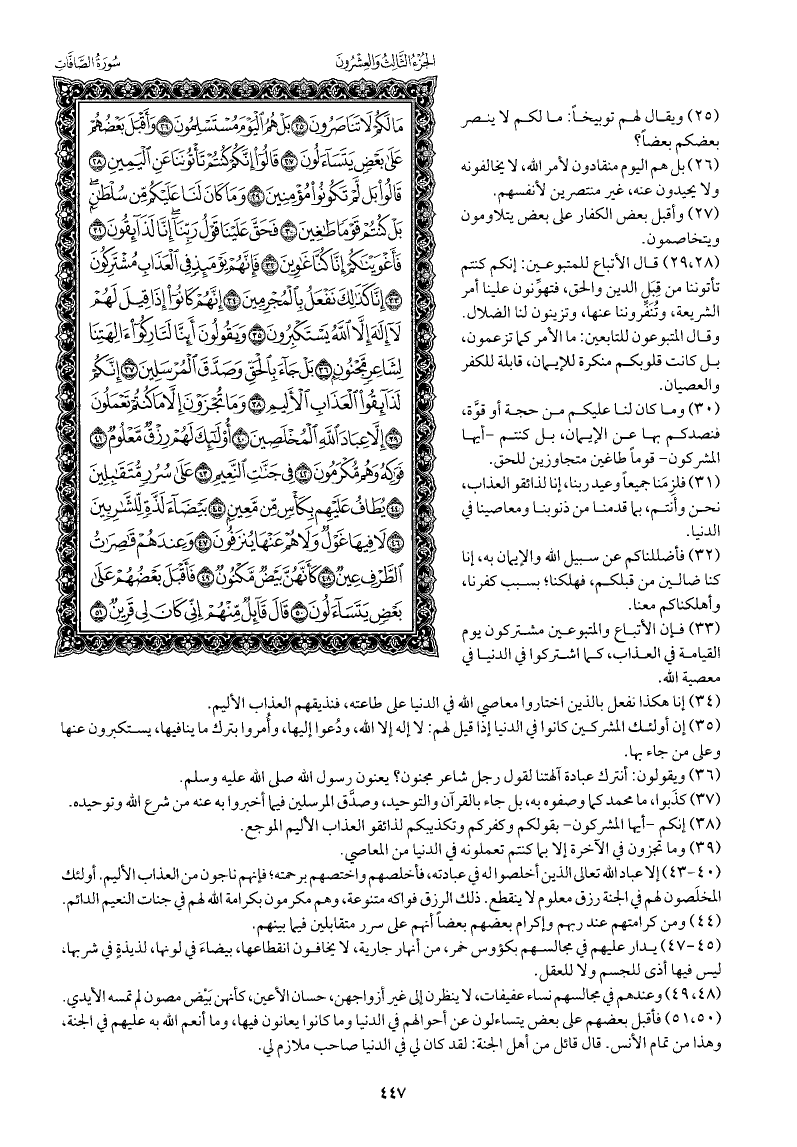 الجزء الثالث والعشرون
سورة الصافات
مَا لَكُمْ لَا تَنَاصَرُونَ ٢٥ بَلْ هُمُ الْيَوْمَ مُسْتَسْلِمُونَ ٢٦ وَأَقْبَلَ بَعْضُهُمْ
عَلَىٰ بَعْضٍ يَتَسَاءَلُونَ ٢٧ قَالُوا إِنَّكُمْ كُنْتُمْ تَأْتُونَنَا عَنِ الْيَمِينِ ٢٨
قَالُوا بَلْ لَمْ تَكُونُوا مُؤْمِنِينَ ٢٩ وَمَا كَانَ لَنَا عَلَيْكُمْ مِنْ سُلْطَانٍ
بَلْ كُنْتُمْ قَوْمًا طَاغِينَ ٣٠ فَحَقَّ عَلَيْنَا قَوْلُ رَبِّنَا إِنَّا لَذَائِقُونَ ٣١
فَأَغْوَيْنَاكُمْ إِنَّا كُنَّا غَاوِينَ ٣٢ فَإِنَّهُمْ يَوْمَئِذٍ فِي الْعَذَابِ مُشْتَرِكُونَ
٣٣ إِنَّا كَذَٰلِكَ نَفْعَلُ بِالْمُجْرِمِينَ ٣٤ إِنَّهُمْ كَانُوا إِذَا قِيلَ لَهُمْ
لَا إِلَٰهَ إِلَّا اللَّهُ يَسْتَكْبِرُونَ ٣٥ وَيَقُولُونَ أَئِنَّا لَتَارِكُو آلِهَتِنَا
لِشَاعِرٍ مَجْنُونٍ ٣٦ بَلْ جَاءَ بِالْحَقِّ وَصَدَّقَ الْمُرْسَلِينَ ٣٧ إِنَّكُمْ
لَذَائِقُو الْعَذَابِ الْأَلِيمِ ٣٨ وَمَا تُجْزَوْنَ إِلَّا مَا كُنْتُمْ تَعْمَلُونَ
٣٩ إِلَّا عِبَادَ اللَّهِ الْمُخْلَصِينَ ٤٠ أُولَٰئِكَ لَهُمْ رِزْقٌ مَعْلُومٌ ٤١
فَوَاكِهُ وَهُمْ مُكْرَمُونَ ٤٢ فِي جَنَّاتِ النَّعِيمِ ٤٣ عَلَىٰ سُرُرٍ مُتَقَابِلِينَ
٤٤ يُطَافُ عَلَيْهِمْ بِكَأْسٍ مِنْ مَعِينٍ ٤٥ بَيْضَاءَ لَذَّةٍ لِلشَّارِبِينَ
٤٦ لَا فِيهَا غَوْلٌ وَلَا هُمْ عَنْهَا يُنْزَفُونَ ٤٧ وَعِنْدَهُمْ قَاصِرَاتُ
الطَّرْفِ عِينٌ ٤٨ كَأَنَّهُنَّ بَيْضٌ مَكْنُونٌ ٤٩ فَأَقْبَلَ بَعْضُهُمْ عَلَىٰ
بَعْضٍ يَتَسَاءَلُونَ ٥٠ قَالَ قَائِلٌ مِنْهُمْ إِنِّي كَانَ لِي قَرِينٌ ٥١
(٢٥) ويقال لهم توبيخاً: ما لكم لا ينصر
بعضكم بعضاً؟
(٢٦) بل هم اليوم منقادون لأمر الله، لا يخالفونه
ولا يحيدون عنه، غير منتصرين لأنفسهم.
(٢٧) وأقبل بعض الكفار على بعض يتلاومون
ويتخاصمون.
(٢٩،٢٨) قال الأتباع للمتبوعين: إنكم كنتم
تأتوننا من قِبَل الدين والحق، فتهوِّنون علينا أمر
الشريعة، وتُنَفِّروننا عنها، وتزينون لنا الضلال.
وقال المتبوعون للتابعين: ما الأمر كما تزعمون،
بل كانت قلوبكم منكرة للإيمان، قابلة للكفر
والعصيان.
(٣٠) وما كان لنا عليكم من حجة أو قوَّة،
فنصدكم بها عن الإيمان، بل كنتم -أيها
المشركون- قوماً طاغين متجاوزين للحق.
(٣١) فلزِمَنا جميعاً وعيد ربنا، إنا لذائقو العذاب،
نحن وأنتم، بما قدمنا من ذنوبنا ومعاصينا في
الدنيا.
(٣٢) فأضللناكم عن سبيل الله والإيمان به، إنا
كنا ضالين من قبلكم، فهلكنا؛ بسبب كفرنا،
وأهلكناكم معنا.
(٣٣) فإن الأتباع والمتبوعين مشتركون يوم
القيامة في العذاب، كما اشتركوا في الدنيا في
معصية الله.
(٣٤) إنا هكذا نفعل بالذين اختاروا معاصي الله في الدنيا على طاعته، فنذيقهم العذاب الأليم.
(٣٥) إن أولئك المشركين كانوا في الدنيا إذا قيل لهم: لا إله إلا الله، ودُعوا إليها، وأُمروا بترك ما ينافيها، يستكبرون عنها
وعلى من جاء بها.
(٣٦) ويقولون: أنترك عبادة آلهتنا لقول رجل شاعر مجنون؟ يعنون رسول الله صلى الله عليه وسلم.
(٣٧) كذَبوا، ما محمد كما وصفوه به، بل جاء بالقرآن والتوحيد، وصدَّق المرسلين فيما أخبروا به عنه من شرع الله وتوحيده.
(٣٨) إنكم -أيها المشركون- بقولكم وكفركم وتكذيبكم لذائقو العذاب الأليم الموجع.
(٣٩) وما تجزون في الآخرة إلا بما كنتم تعملونه في الدنيا من المعاصي.
(٤٠-٤٣) إلا عباد الله تعالى الذين أخلصوا له في عبادته، فأخلصهم واختصهم برحمته؛ فإنهم ناجون من العذاب الأليم. أولئك
المخلَصون لهم في الجنة رزق معلوم لا ينقطع. ذلك الرزق فواكه متنوعة، وهم مكرمون بكرامة الله لهم في جنات النعيم الدائم.
(٤٤) ومن كرامتهم عند ربهم وإكرام بعضهم بعضاً أنهم على سرر متقابلين فيما بينهم.
(٤٥-٤٧) يدار عليهم في مجالسهم بكؤوس خمر، من أنهار جارية، لا يخافون انقطاعها، بيضاءَ في لونها، لذيذةٍ في شربها،
ليس فيها أذى للجسم ولا للعقل.
(٤٩،٤٨) وعندهم في مجالسهم نساء عفيفات، لا ينظرن إلى غير أزواجهن، حسان الأعين، كأنهن بَيْض مصون لم تمسه الأيدي.
(٥١،٥٠) فأقبل بعضهم على بعض يتساءلون عن أحوالهم في الدنيا وما كانوا يعانون فيها، وما أنعم الله به عليهم في الجنة،
وهذا من تمام الأنس. قال قائل من أهل الجنة: لقد كان لي في الدنيا صاحب ملازم لي.
٤٤٧